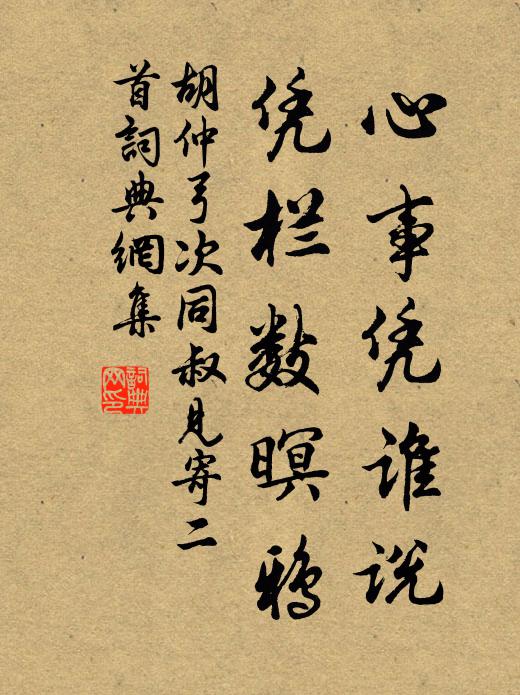 心事凭谁说
凭栏数暝鸦
胡仲弓次同叔见寄二
首詞典網集
詞典網印